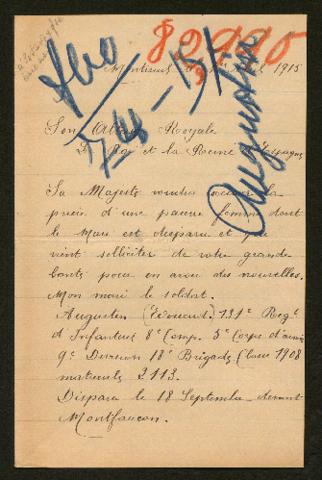 80995
7/4-15
Augustin
Montreuil 1915
Son Altesse Royale
Le Roi et la Reine d'Espagne
Sa Majesté voudra la
prière d'une pauvre femme dont
le Mari est disparu et qui
vient solliciter de votre grande
bonté pour en avoir des nouvelles.
Mon mari le soldat.
Augustin (Edouard) 131e Reg.
d'Infanterie 8e Comp. 5e Corps d'armée
9e Division 18e Brigade Classe 1908
matricule 2113.
Disparu le 18 Septembre devant
Montfaucon.